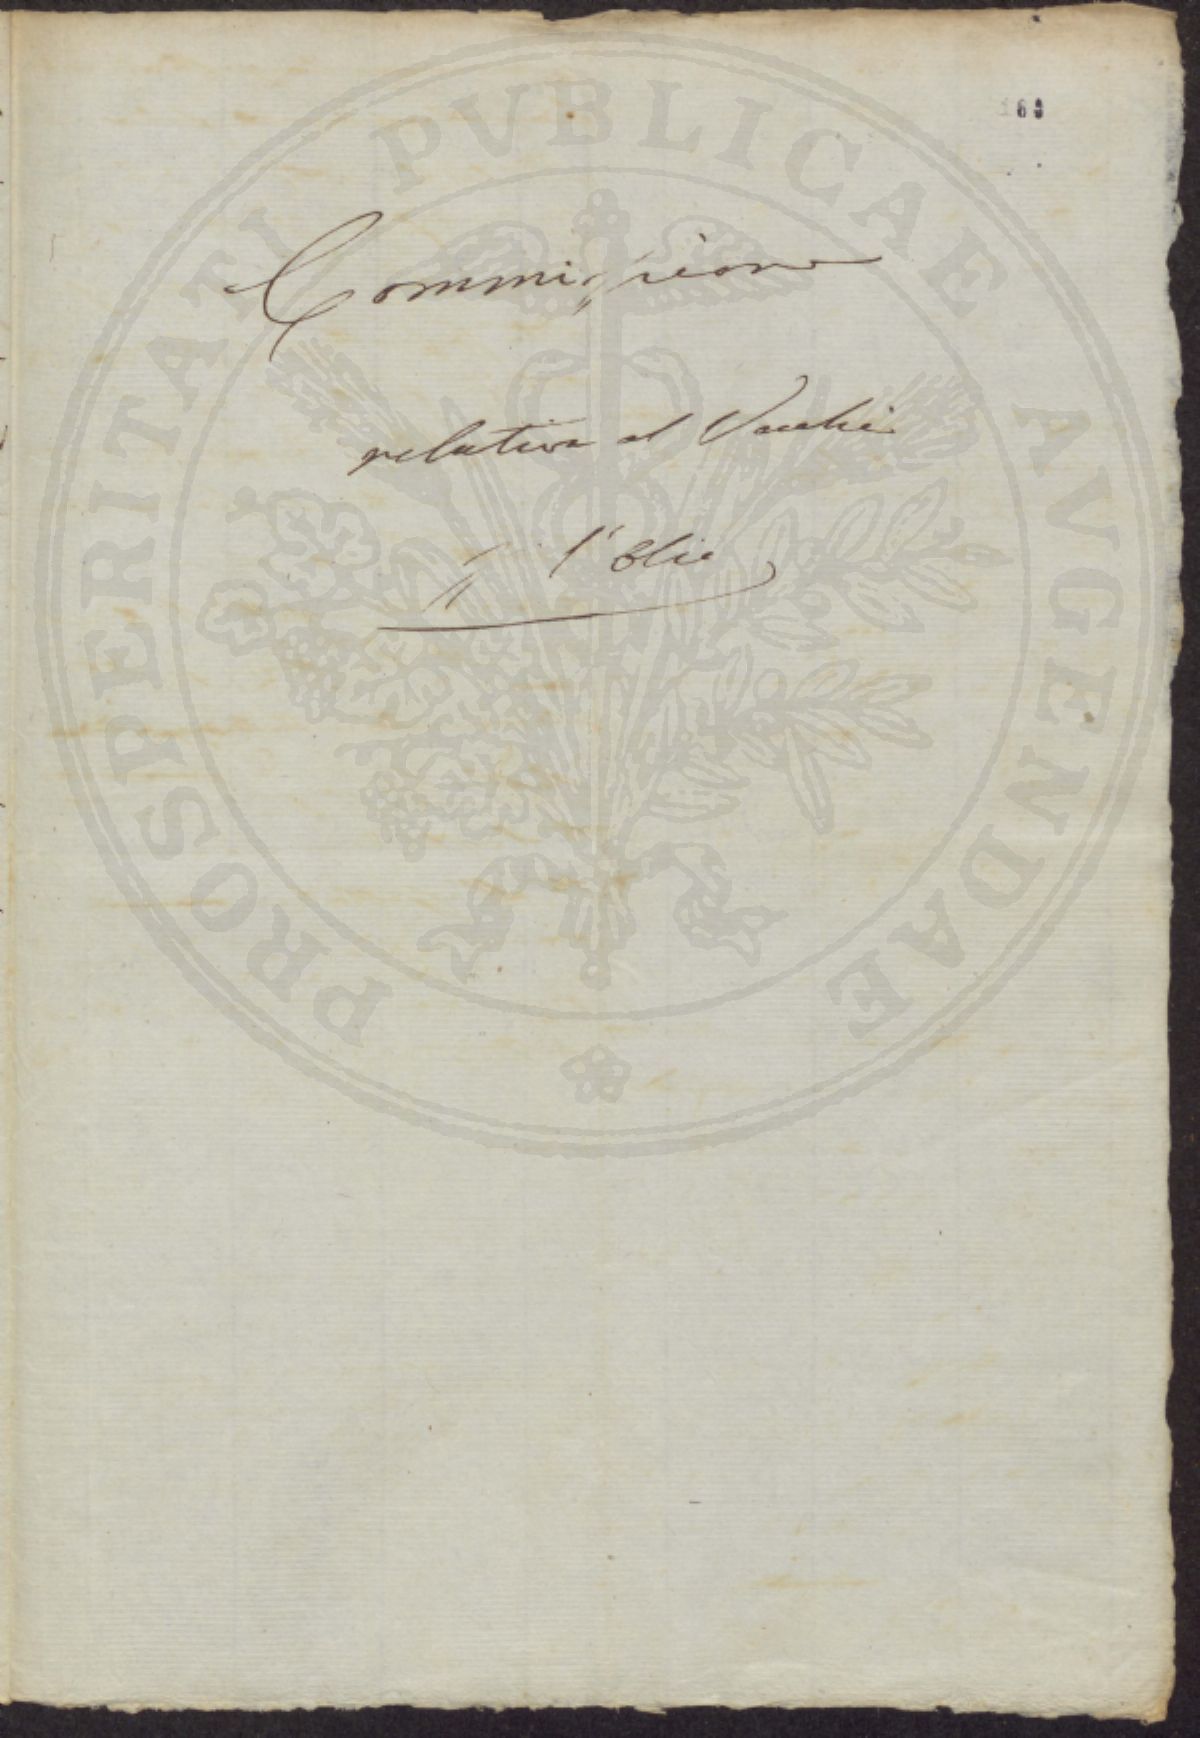 Commissione
relativa al Vecchi
l'Olio
PROSPERITATI PVBLICAE AVGENDAE